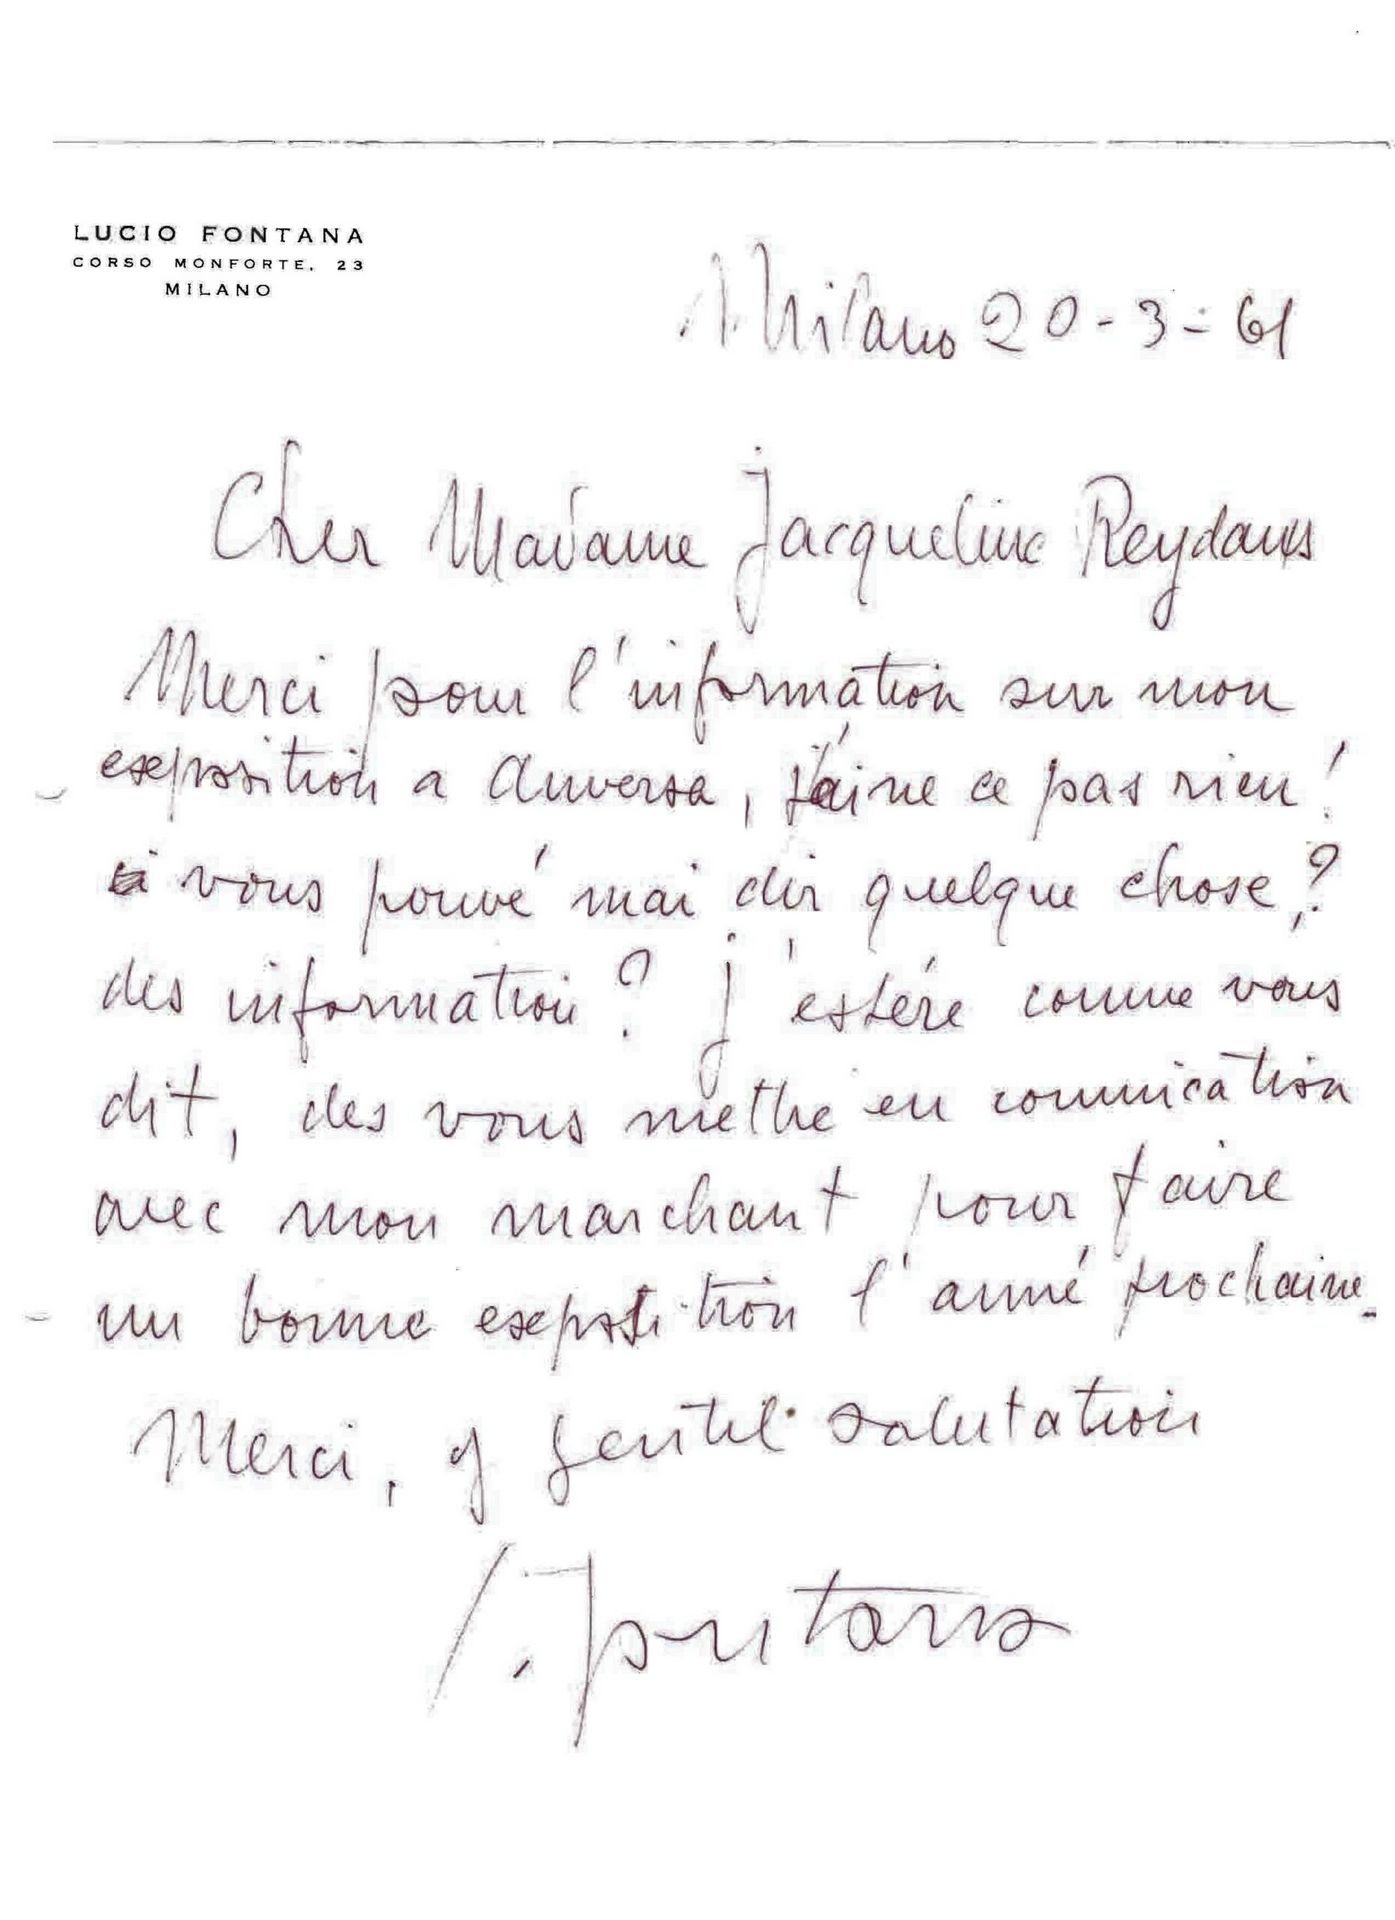 LUCIO FONTANA
CORSO MONFORTE, 23
MILANO
Milano 20-3-61
Cher Madame Jacqueline Reydams
Merci pour l'information sur mon
exposition a Anversa, j'aine ce pas rien!
si vous pouvé mai dir quelque chose,?
des information? J'estére comme vous
dit, des vous methe en comnication
avec mon marchant pour faire
un bonne exposition l'anné prochaine.
Merci, y gentil salutation
l. Fontana